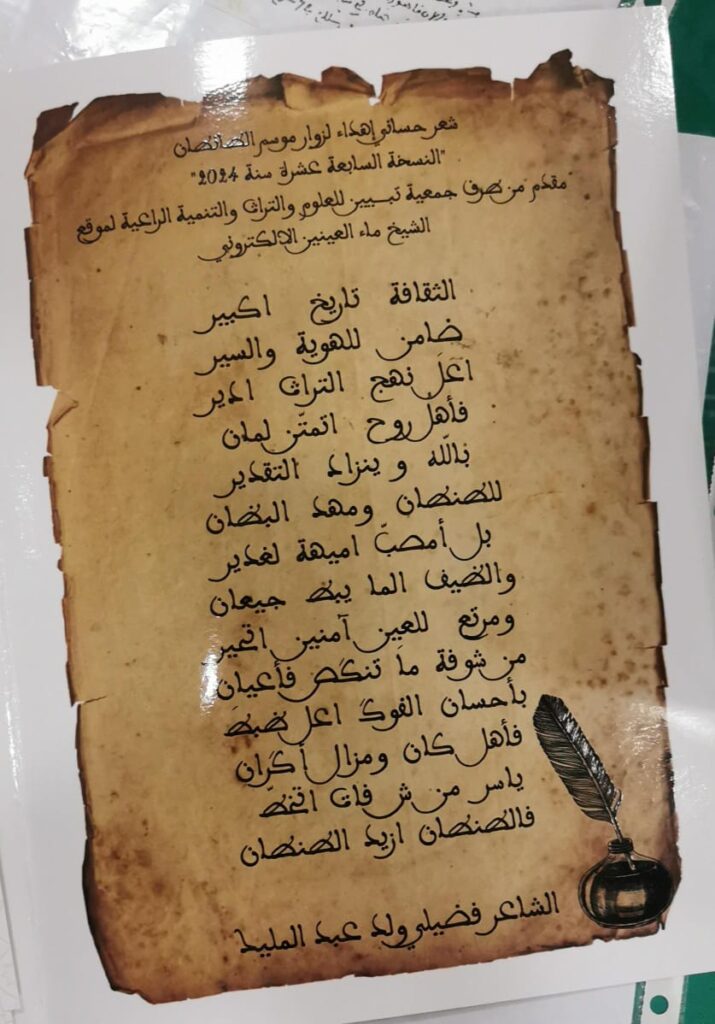 شعر حساني إهداء لزوار موسم الطانطان
"النسخة السابعة عشرة سنة 2024"
مقدم من طرف جمعية تبيين للعلوم والتراث والتنمية الراعية لموقع
الشيخ ماء العينين الإلكتروني
الثقافة تاريخ اكبير
ضامن للهوية والسير
اعَل نهج التراث ادير
فأهل روح اتمتّن لمان
بالله وينزاد التقدير
للطنطان ومهد البظان
بل أمصبّ اميهة لغدير
والظيف الما يبط جيعان
ومرتع للعين آمنين اتحير
من شوفة ما تنگص فأعيان
بأحسان الفوگ اعل ضبط
فأهل كان ومزال أگران
ياسر من ش فات اتخطّ
فالطنطان ازيد الطنطان
الشاعر فضيلي ولد عبد